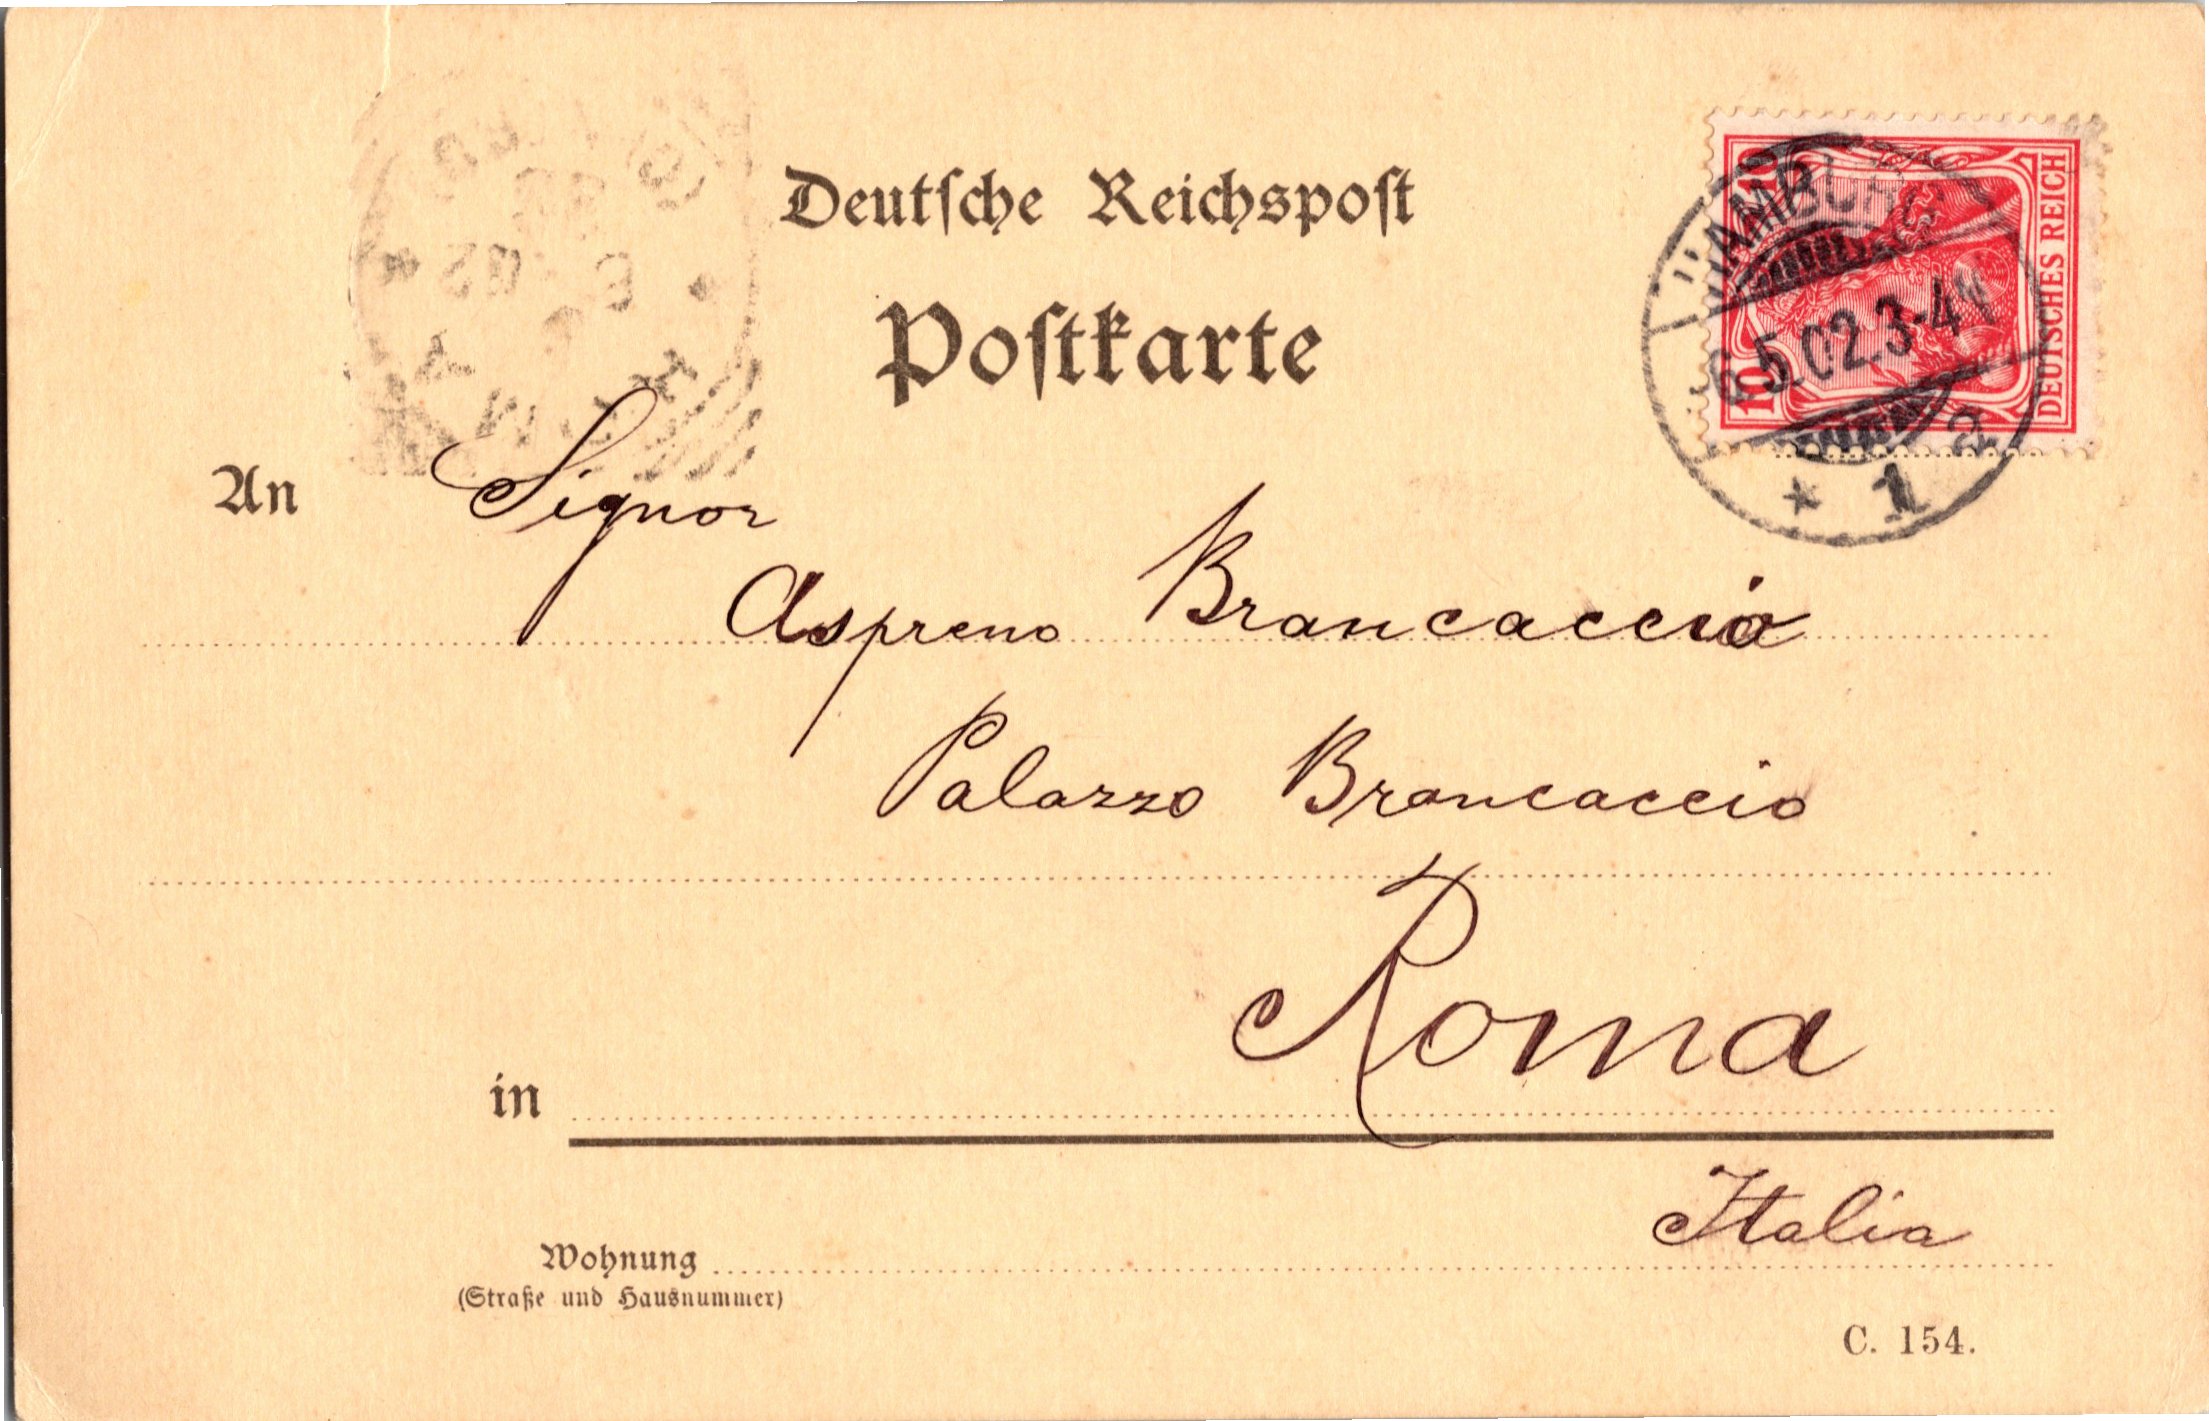 Deutſche Reichspoſt
Poſtkarte
10 10
DEUTSCHES REICH
HAMBURG
6.5.02.3-4N
* 1 a
An Signor
Aspreno Brancaccio
Palazzo Brancaccio
in Roma
Italia
Wohnung
(Straße und Hausnummer)
C. 154.